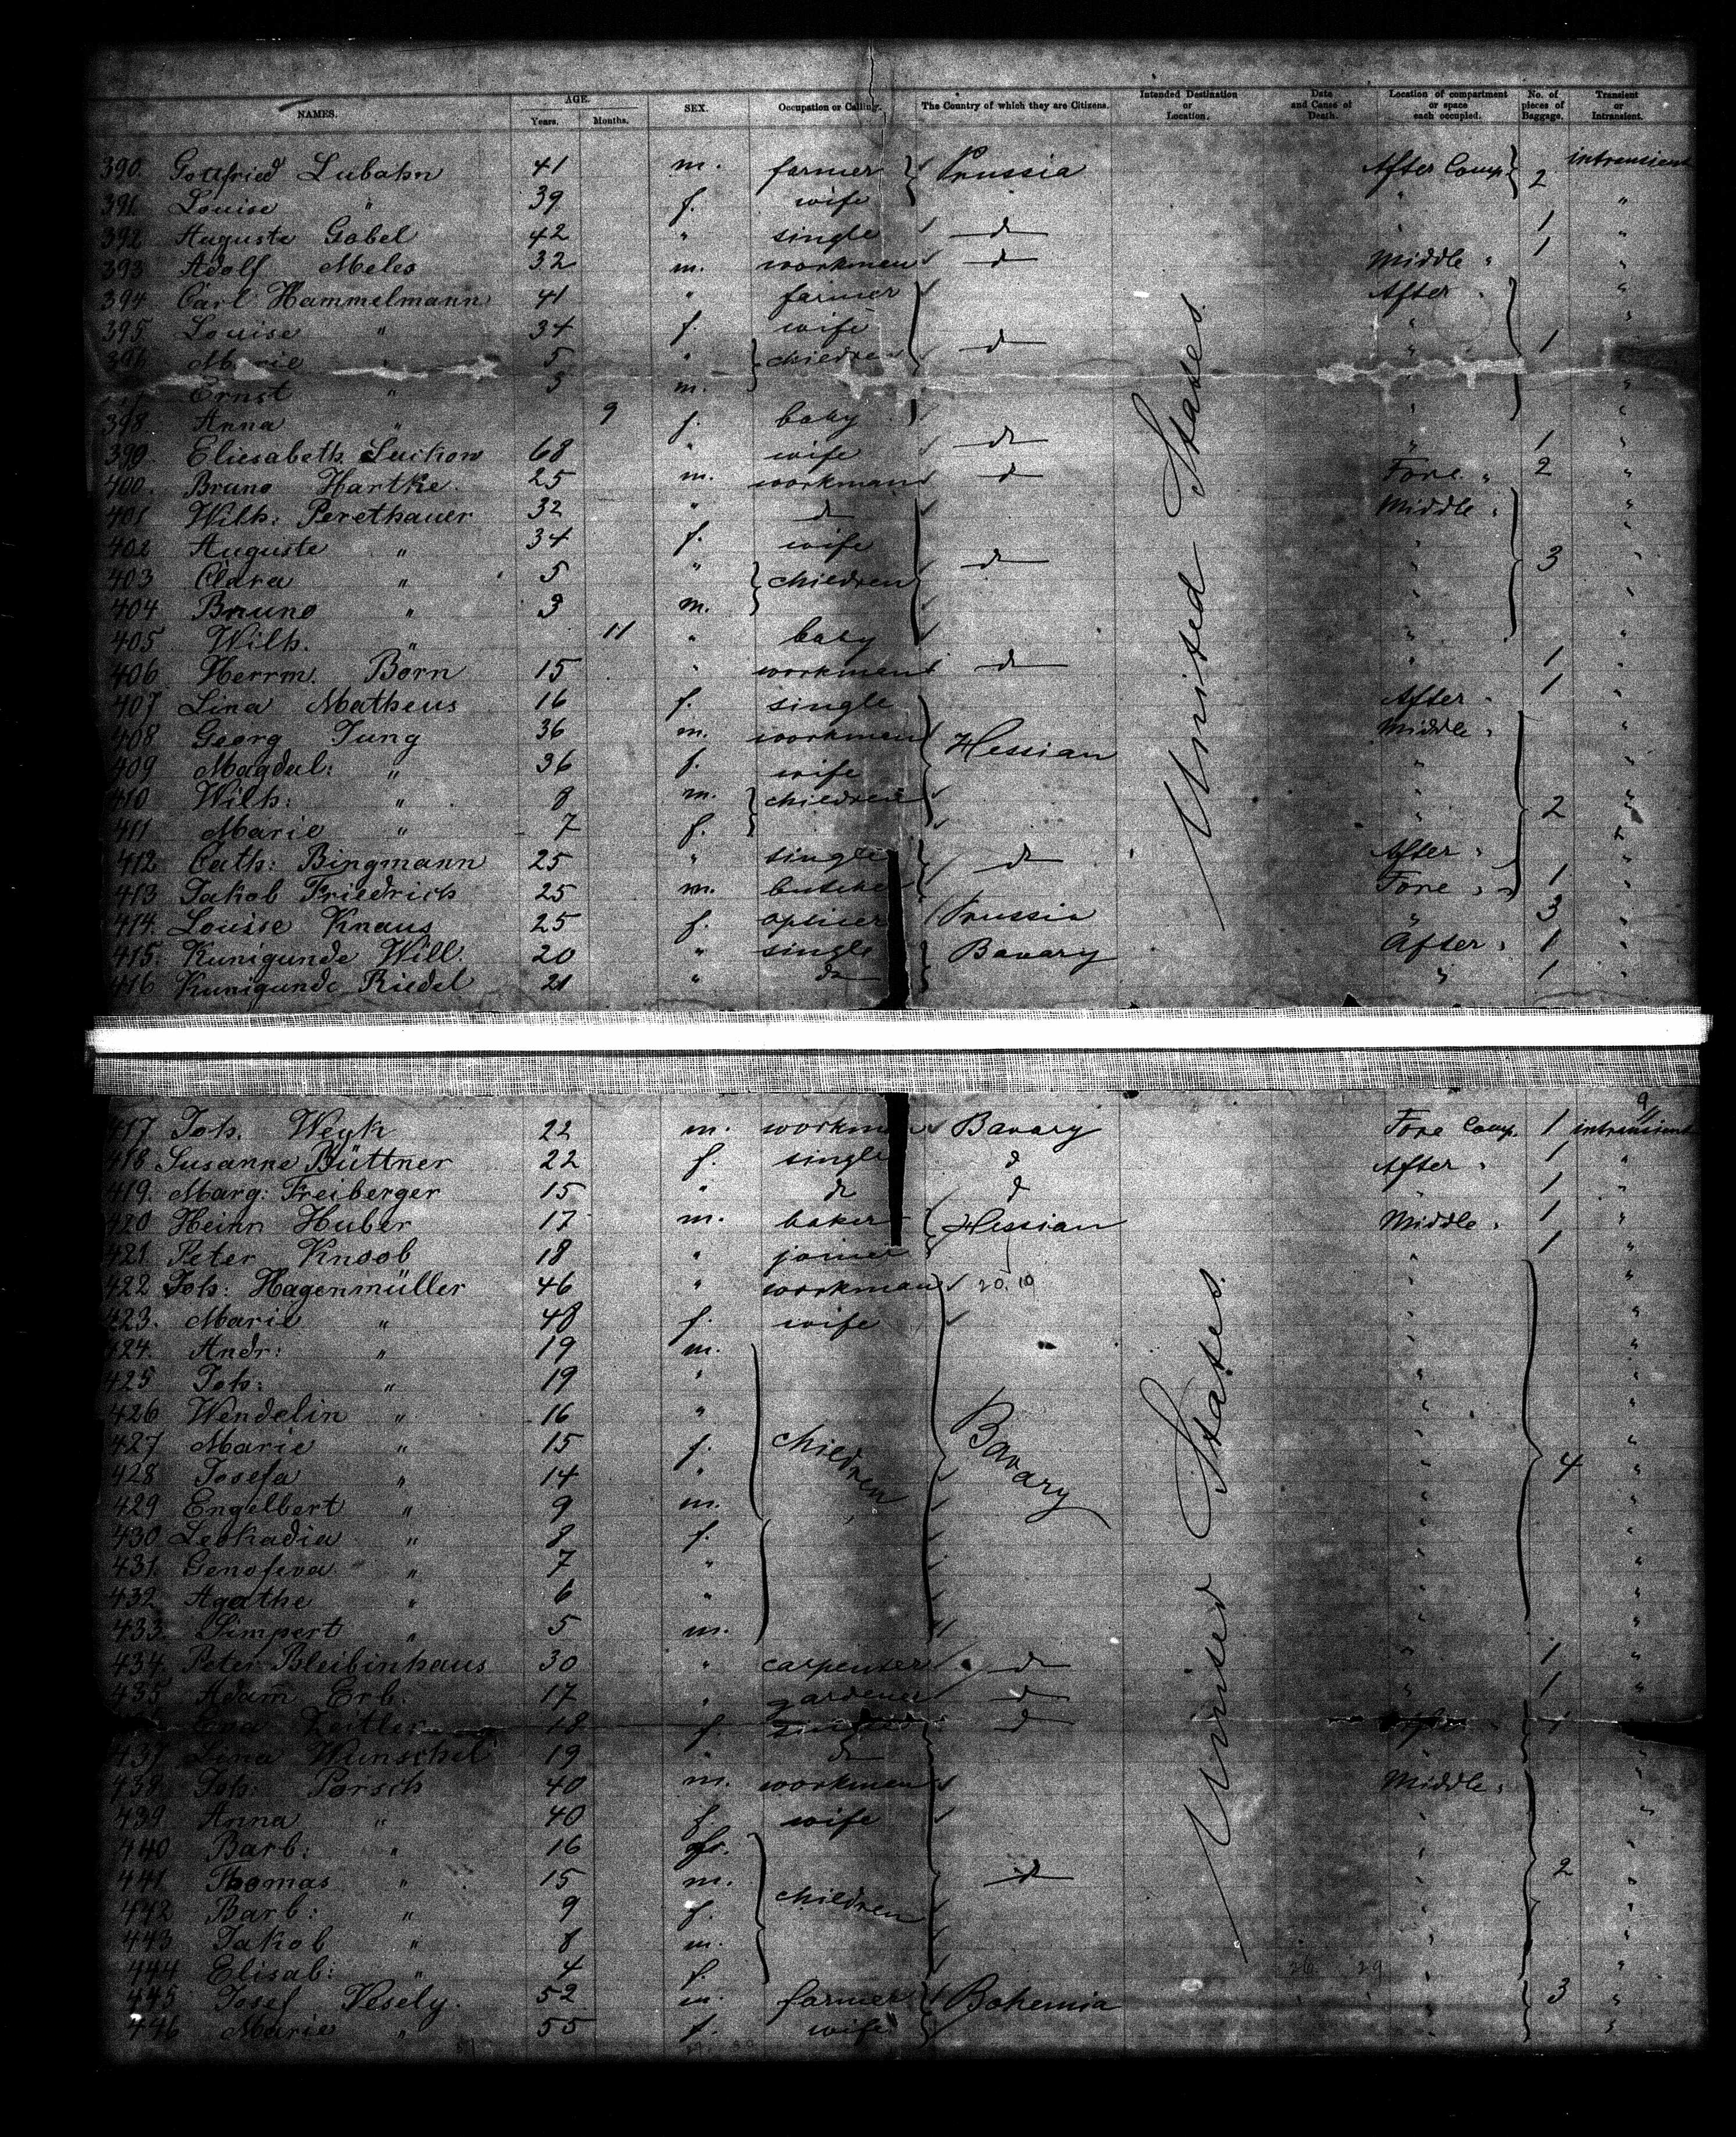 NAMES. AGE. Years. Months. SEX. Occupation or Calling. The Country of which they are Citizens. Intended Destination or Location. Date and Cause of Death. Location of compartment or space each occupied. No. of pieces of Baggage. Transient or Intransient.
390. Gottfried Lubahn 41 m. farmer Prussia After Comp. 2 intransient
391 Louise " 39 f. wife " "
392 Auguste Gobel 42 " single d 1 "
393 Adolf Meles 32 m. workmen d Middle " 1 "
394 Carl Hammelmann 41 " farmer After " "
395. Louise " 34 f. wife " "
396 Marie 5 " children d " 1
Ernst " 3 m. "
398 Anna " 9 f. baby " "
399. Eliesabeth Luckow 68 " wife d " 1 "
400. Bruno Hartke. 25 m. workman d Fore " 2 "
401 Wilh: Perethauer 32 " d Middle " "
402 Auguste " 34 f. wife " "
403 Clara " 5 " children d " 3 "
404 Bruno " 3 m. " "
405 Wilh. " 11 " baby " "
406 Herrm. Born 15 " workmen d " 1 "
407 Lina Matheus 16 f. single After " 1 "
408 Georg Jung 36 m. workmen Hessian Middle " "
409 Magdal: " 36 f. wife " "
410 Wilh: " 8 m. children " 2 "
411 Marie " 7 f. "
412 Cath: Bingmann 25 " single d After " "
413 Jakob Friedrich 25 m. Fore " 1 "
414. Louise Knaus 25 f. Prussia " 3 "
415. Kunigunde Will. 20 " single Bavary After " 1 "
416 Kunigunde Riedel 21 " do " 1 "
United States
9
417 Joh. Weyh 22 m. workm Bavary Fore Comp. 1 intransient
418 Susanne Büttner 22 f. single d After " 1 "
419. Marg: Freiberger 15 " do d " 1 "
420 Heinr Huber 17 m. baker Hessian Middle " 1 "
421 Peter Knoob 18 " joiner " 1 "
422 Joh: Hagenmüller 46 " workman 20. 10 " "
423. Marie " 48 f. wife " "
424. Andr: " 19 m. " "
425 Joh: " 19 " " "
426 Wendelin " 16 " " "
427 Marie " 15 f. children Bavary " "
428 Josefa " 14 " " 4 "
429 Engelbert " 9 m. " "
430 Leokadia " 8 f. " "
431. Genofeva " 7 " " "
432 Agathe " 6 " " "
433. Simpert " 5 m. " "
434 Peter Bleibinhaus 30 " carpenter d " 1 "
435 Adam Erb. 17 " gardener d " 1 "
Zeitler 18 f. d 1
437 Lina Wunschel 19 " do " "
438 Joh: Porsch 40 m. workmen Middle " "
439 Anna " 40 f. wife " "
440 Barb: " 16 f. " "
441 Thomas " 15 m. children d " 2 "
442 Barb: " 9 f. " "
443 Jakob " 8 m. " "
444 Elisab: " 4 f. " "
445 Josef Vesely. 52 m. farmer Bohemia 3 "
446 Marie " 55 f. wife " "
United States